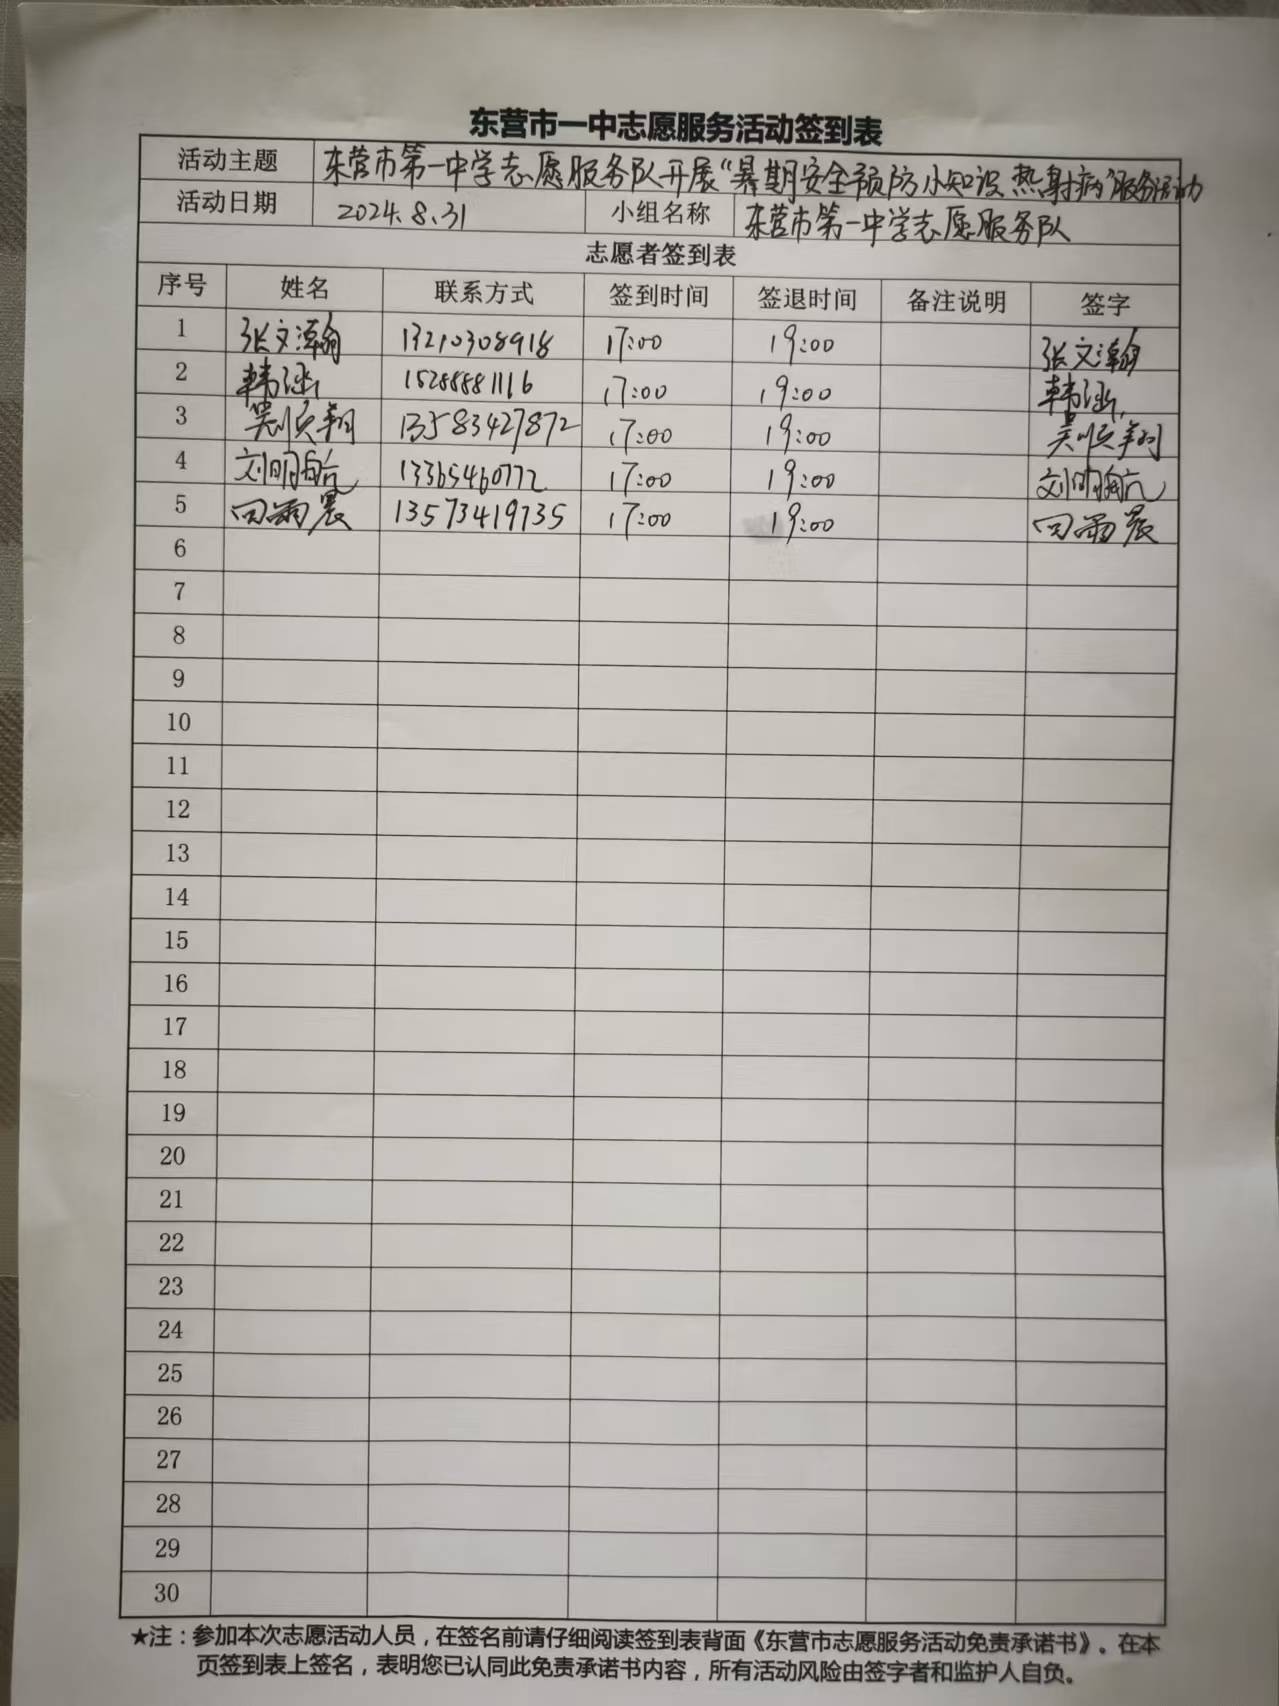 东营市一中志愿服务活动签到表
活动主题 东营市第一中学志愿服务队开展“暑期安全预防小知识 热射病”服务活动
活动日期 2024.8.31 小组名称 东营市第一中学志愿服务队
志愿者签到表
序号 姓名 联系方式 签到时间 签退时间 备注说明 签字
1 张文瀚 13210308918 17:00 19:00 张文瀚
2 韩涵 15288881116 17:00 19:00 韩涵
3 吴顺翔 13583427872 17:00 19:00 吴顺翔
4 刘明航 13365460772 17:00 19:00 刘明航
5 回雨晨 13573419735 17:00 19:00 回雨晨
6
7
8
9
10
11
12
13
14
15
16
17
18
19
20
21
22
23
24
25
26
27
28
29
30
★注：参加本次志愿活动人员，在签名前请仔细阅读签到表背面《东营市志愿服务活动免责承诺书》。在本
页签到表上签名，表明您已认同此免责承诺书内容，所有活动风险由签字者和监护人自负。